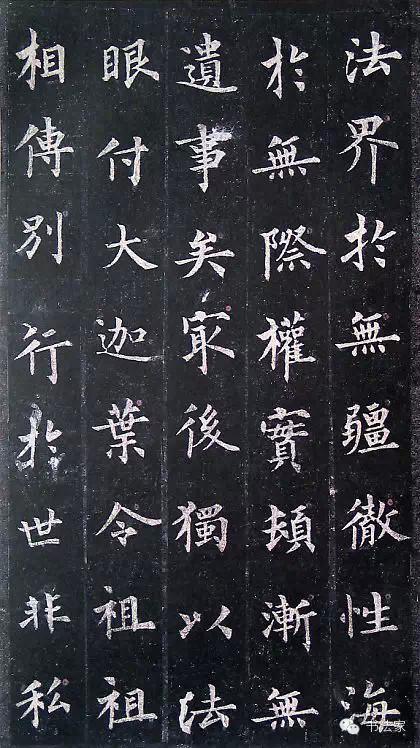 法界於無疆徹性海
於無際權實頓漸無
遺事矣冣後獨以法
眼付大迦葉令祖祖
相傳別行於世非私
书法家